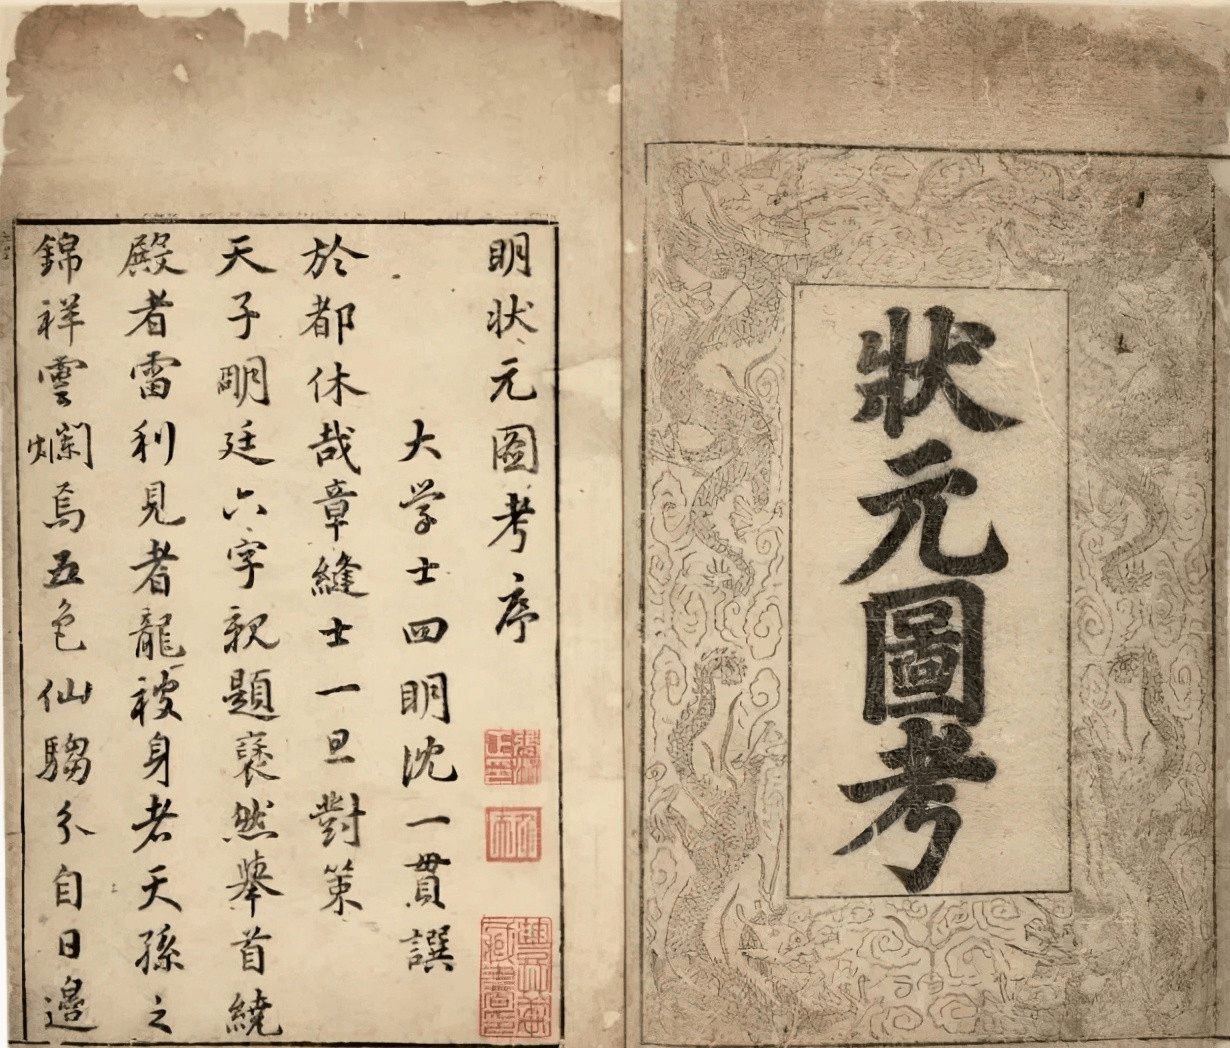 狀元圖考
明状元图考序
大学士四明沈一貫譔
於都休哉章縫士一旦對策
天子明廷六字親題褎然舉首繞
殿者雷利見者龍被身者天孫之
錦祥雲爛焉五色仙騶分自日邊